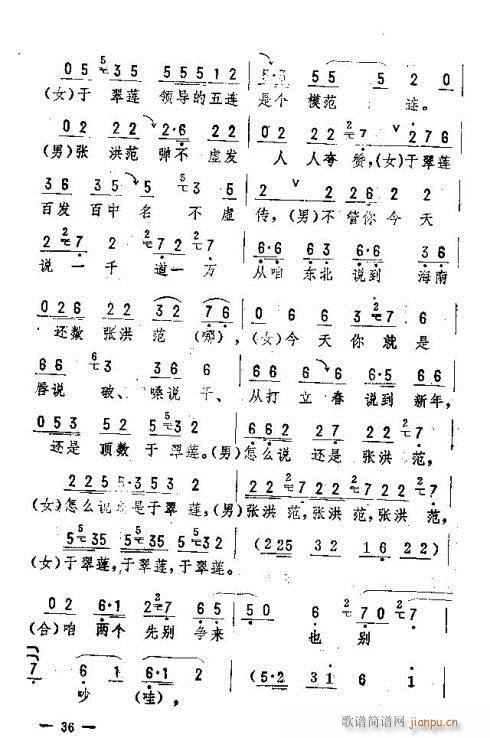 05 5 35 55512 | 5·3 55 5 20 |
(女)于 翠莲 领导的五连 是个 模范 连。
02 22 2·6 22 | 02 02 2 2 7 276 |
(男)张 洪范 弹不 虚发 人 人夸 赞,(女)于翠莲
36 36 5 5 3 | 2 2 226 22 |
百发 百中 名 不 虚 传,(男)不 管你 今天
2 2 7 2 7 2 2 7 | 6·6 63 6·6 36 |
说一 千 道一 万 从咱 东北 说到 海南
026 22 32 (76) | 02 66 3 2 7 6 |
还数 张洪 范 (哪),(女)今天 你 就 是
66 6 3 36 6 | 66 66 6·5 66 |
唇说 破、 嗓说 干、 从打 立春 说到 新年,
053 52 5 532 | 662 02 22 2 7 |
还是 顶数 于翠莲。(男)怎么说 还是 张洪 范,
(女)怎么说 还是于翠莲,(男)张洪 范,张洪 范,张洪 范,
5 35 5 35 5 32 | (225 32 16 22) |
(女)于翠莲,于翠莲,于翠莲。
02 6·1 2 2 7 65 | 50 6 2 70 2 7 |
(合)咱 两个 先别 争来 也 别
7 6 1 6·1 2 | (5·2 32 1 61 2) |
吵 (哇),
— 36 —
歌谱简谱网
jianpu.cn